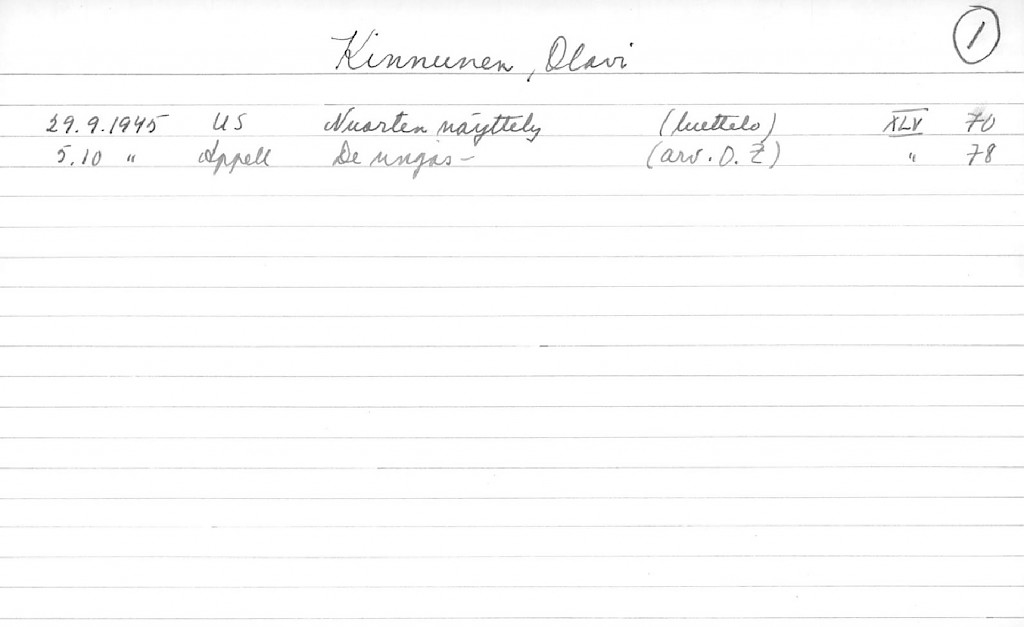 Kinnunen, Olavi 1
29.9.1945 US Nuorten näyttely (luettelo) XLV 70
5.10 " Appell De ungas – (arv. O. Z) " 78